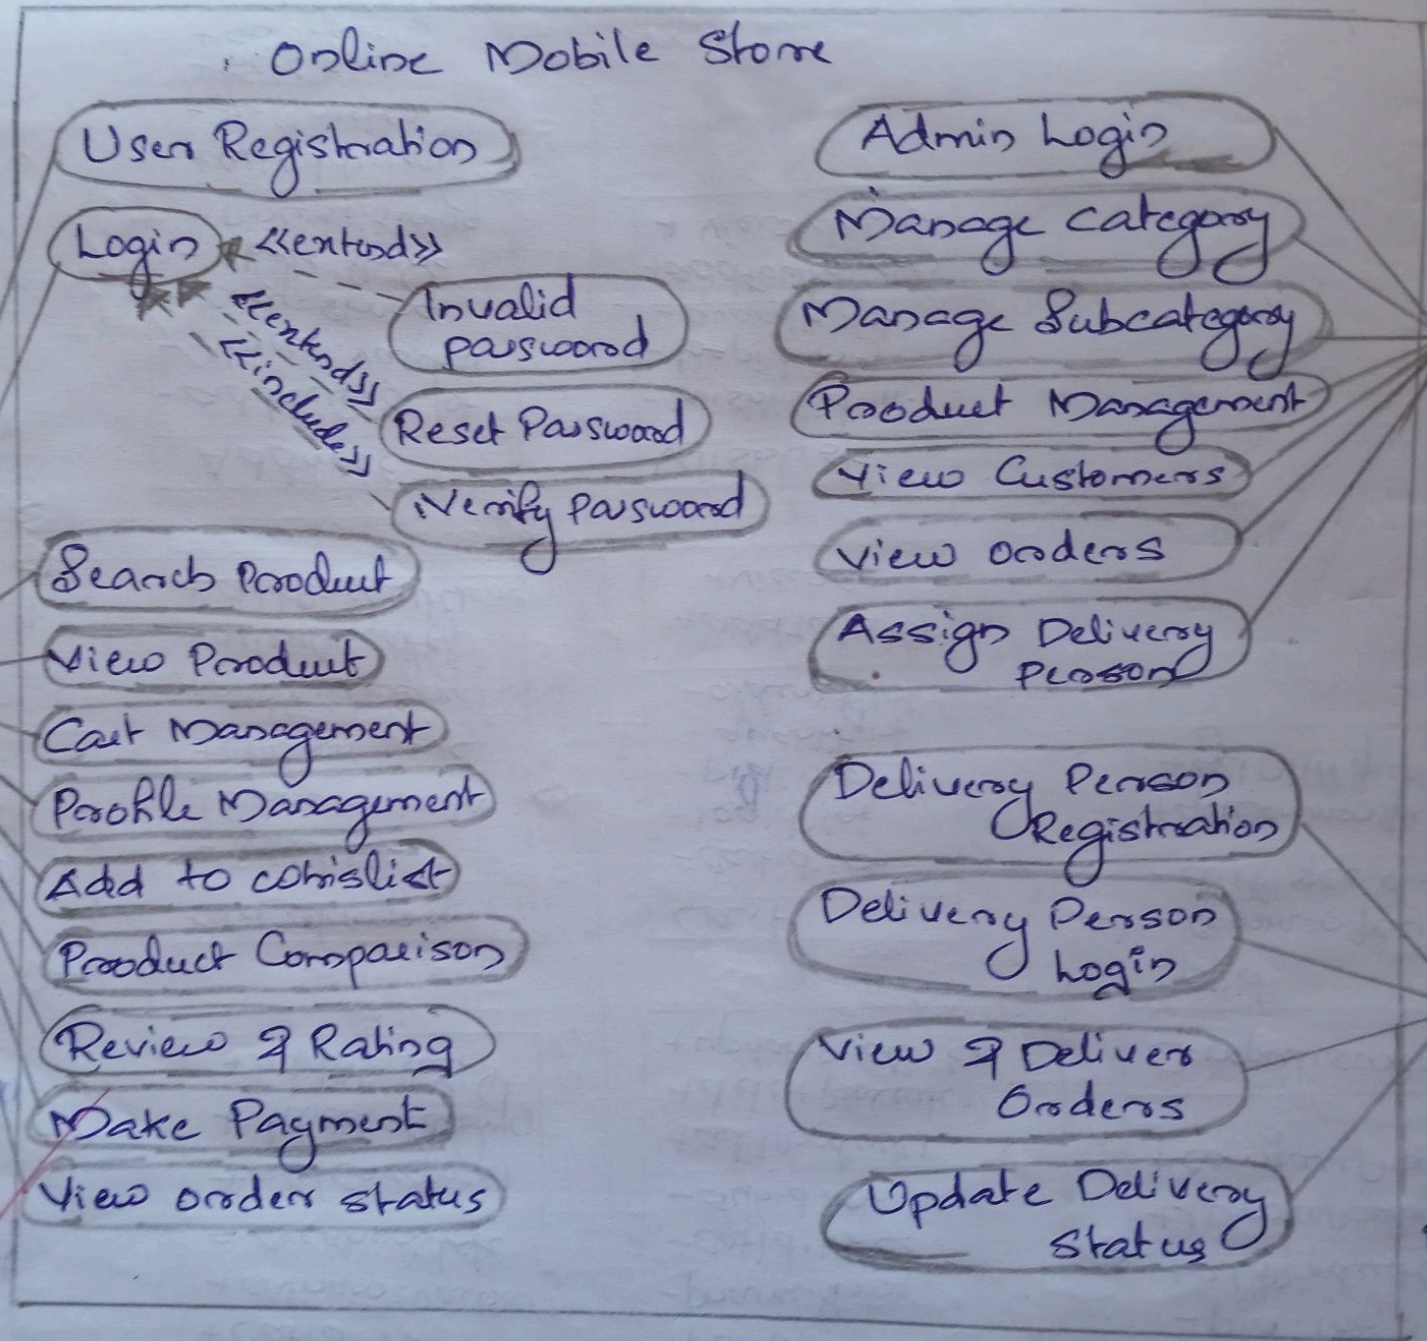 Online Mobile Store
User Registration
Login
<<extend>>
Invalid
password
<<extend>>
Reset Password
<<include>>
Verify Password
Search Product
View Product
Cart Management
Profile Management
Add to Whislist
Product Comparison
Review & Rating
Make Payment
View order status
Admin Login
Manage Category
Manage Subcategory
Product Management
View Customers
View orders
Assign Delivery
Person
Delivery Person
Registration
Delivery Person
Login
View & Deliver
Orders
Update Delivery
Status